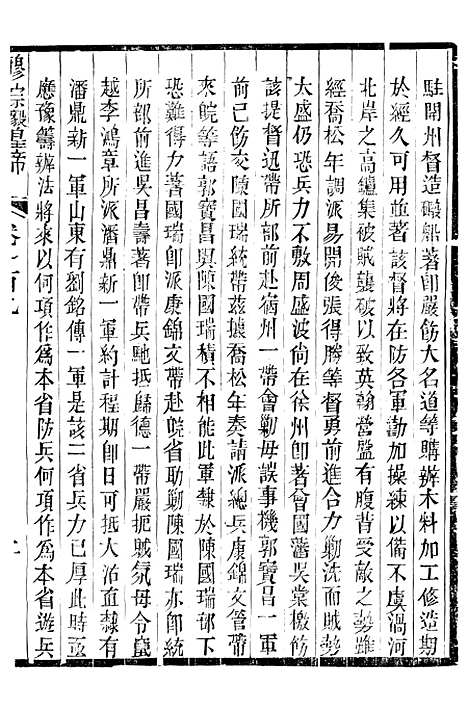 駐開州督造礮船著卽嚴飭大名道等購辦木料加工修造期
於經久可用並著該督將在防各軍勤加操練以備不虞渦河
北岸之高鑪集被賊襲破以致英翰營盤有腹背受敵之勢雖
經喬松年調派易開俊張得勝等督勇前進合力勦洗而賊勢
太盛仍恐兵力不敷周盛波尙在徐州卽著曾國藩吳棠檄飭
該提督迅帶所部前赴宿州一帶會勦毋誤事機郭寶昌一軍
前已飭交陳國瑞統帶茲據喬松年奏請派總兵康錦文管帶
來皖等語郭寶昌與陳國瑞積不相能此軍隸於陳國瑞部下
恐難得力著國瑞卽派康錦文帶赴皖省助勦陳國瑞亦卽統
所部前進吳昌壽著卽帶兵馳抵歸德一帶嚴扼賊氛毋令竄
越李鴻章所派潘鼎新一軍約計程期卽日可抵大沽直隸有
潘鼎新一軍山東有劉銘傳一軍是該二省兵力已厚此時亟
應豫籌辦法將來以何項作爲本省防兵何項作爲本省遊兵
穆宗毅皇帝 卷一百九